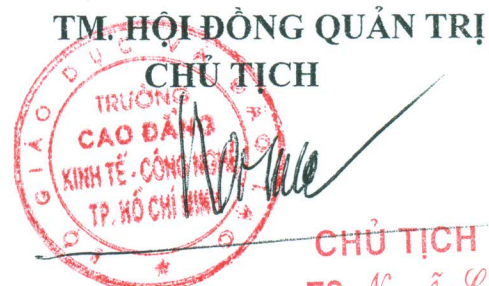 TM. HỘI ĐỒNG QUẢN TRỊ
CHỦ TỊCH
GIÁO DỤC VÀ ĐÀO TẠO
TRƯỜNG
CAO ĐẲNG
KINH TẾ - CÔNG NGHỆ
TP. HỒ CHÍ MINH
CHỦ TỊCH